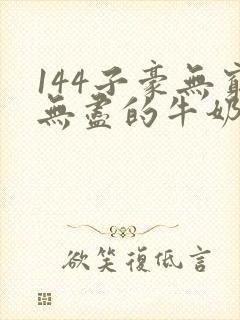 144子豪無窮
無盡的牛奶
欲笑復低言